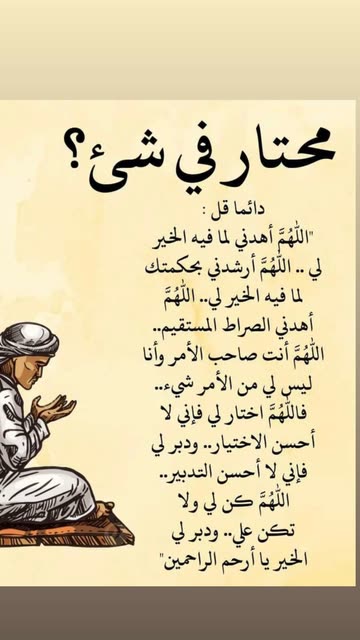 محتار في شئ؟
دائما قل :
"اللَّهُمَّ أهدني لما فيه الخير
لي .. اللَّهُمَّ أرشدني بحكمتك
لما فيه الخير لي.. اللَّهُمَّ
أهدني الصراط المستقيم..
اللَّهُمَّ أنت صاحب الأمر وأنا
ليس لي من الأمر شيء..
فاللَّهُمَّ اختار لي فإني لا
أحسن الاختيار.. ودبر لي
فإني لا أحسن التدبير..
اللَّهُمَّ كن لي ولا
تكن علي.. ودبر لي
الخير يا أرحم الراحمين"